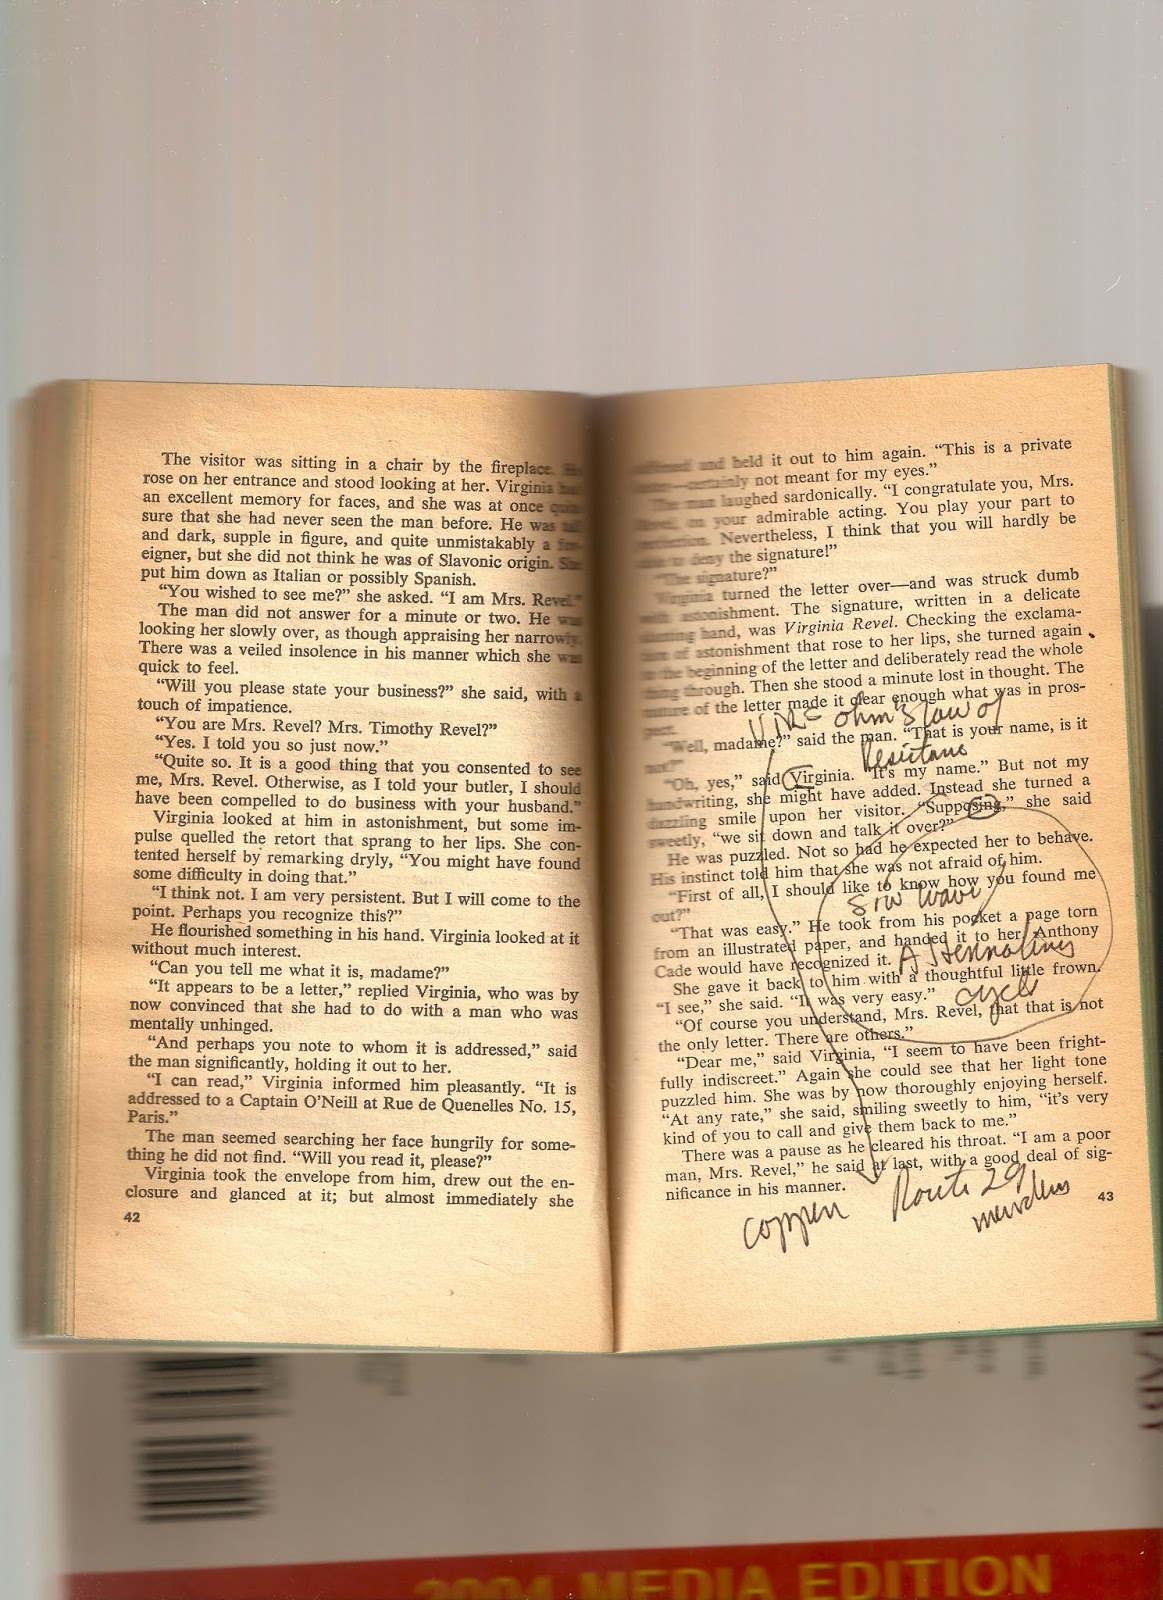 The visitor was sitting in a chair by the fireplace. He
rose on her entrance and stood looking at her. Virginia had
an excellent memory for faces, and she was at once quite
sure that she had never seen the man before. He was tall
and dark, supple in figure, and quite unmistakably a for-
eigner, but she did not think he was of Slavonic origin. She
put him down as Italian or possibly Spanish.
“You wished to see me?” she asked. “I am Mrs. Revel.”
The man did not answer for a minute or two. He was
looking her slowly over, as though appraising her narrowly.
There was a veiled insolence in his manner which she was
quick to feel.
“Will you please state your business?” she said, with a
touch of impatience.
“You are Mrs. Revel? Mrs. Timothy Revel?”
“Yes. I told you so just now.”
“Quite so. It is a good thing that you consented to see
me, Mrs. Revel. Otherwise, as I told your butler, I should
have been compelled to do business with your husband.”
Virginia looked at him in astonishment, but some im-
pulse quelled the retort that sprang to her lips. She con-
tented herself by remarking dryly, “You might have found
some difficulty in doing that.”
“I think not. I am very persistent. But I will come to the
point. Perhaps you recognize this?”
He flourished something in his hand. Virginia looked at it
without much interest.
“Can you tell me what it is, madame?”
“It appears to be a letter,” replied Virginia, who was by
now convinced that she had to do with a man who was
mentally unhinged.
“And perhaps you note to whom it is addressed,” said
the man significantly, holding it out to her.
“I can read,” Virginia informed him pleasantly. “It is
addressed to a Captain O’Neill at Rue de Quenelles No. 15,
Paris.”
The man seemed searching her face hungrily for some-
thing he did not find. “Will you read it, please?”
Virginia took the envelope from him, drew out the en-
closure and glanced at it; but almost immediately she
42
and held it out to him again. “This is a private
letter—certainly not meant for my eyes.”
The man laughed sardonically. “I congratulate you, Mrs.
Revel, on your admirable acting. You play your part to
perfection. Nevertheless, I think that you will hardly be
able to deny the signature!”
“The signature?”
Virginia turned the letter over—and was struck dumb
with astonishment. The signature, written in a delicate
slanting hand, was Virginia Revel. Checking the exclama-
tion of astonishment that rose to her lips, she turned again
to the beginning of the letter and deliberately read the whole
thing through. Then she stood a minute lost in thought. The
nature of the letter made it clear enough what was in pros-
pect.
ohm's law of
“Well, madame?” said the man. “That is your name, is it
not?”
“Oh, yes,” said Virginia. “It’s my name.” But not my
handwriting, she might have added. Instead she turned a
dazzling smile upon her visitor. “Supposing,” she said
sweetly, “we sit down and talk it over?”
He was puzzled. Not so had he expected her to behave.
His instinct told him that she was not afraid of him.
“First of all, I should like to know how you found me
out?”
wave
“That was easy.” He took from his pocket a page torn
from an illustrated paper, and handed it to her. Anthony
Cade would have recognized it.
She gave it back to him with a thoughtful little frown.
“I see,” she said. “It was very easy.”
cycle
“Of course you understand, Mrs. Revel, that that is not
the only letter. There are others.”
“Dear me,” said Virginia, “I seem to have been fright-
fully indiscreet.” Again she could see that her light tone
puzzled him. She was by now thoroughly enjoying herself.
“At any rate,” she said, smiling sweetly to him, “it’s very
kind of you to call and give them back to me.”
There was a pause as he cleared his throat. “I am a poor
man, Mrs. Revel,” he said at last, with a good deal of sig-
nificance in his manner.
Route 29
murders
43
2004 MEDIA EDITION